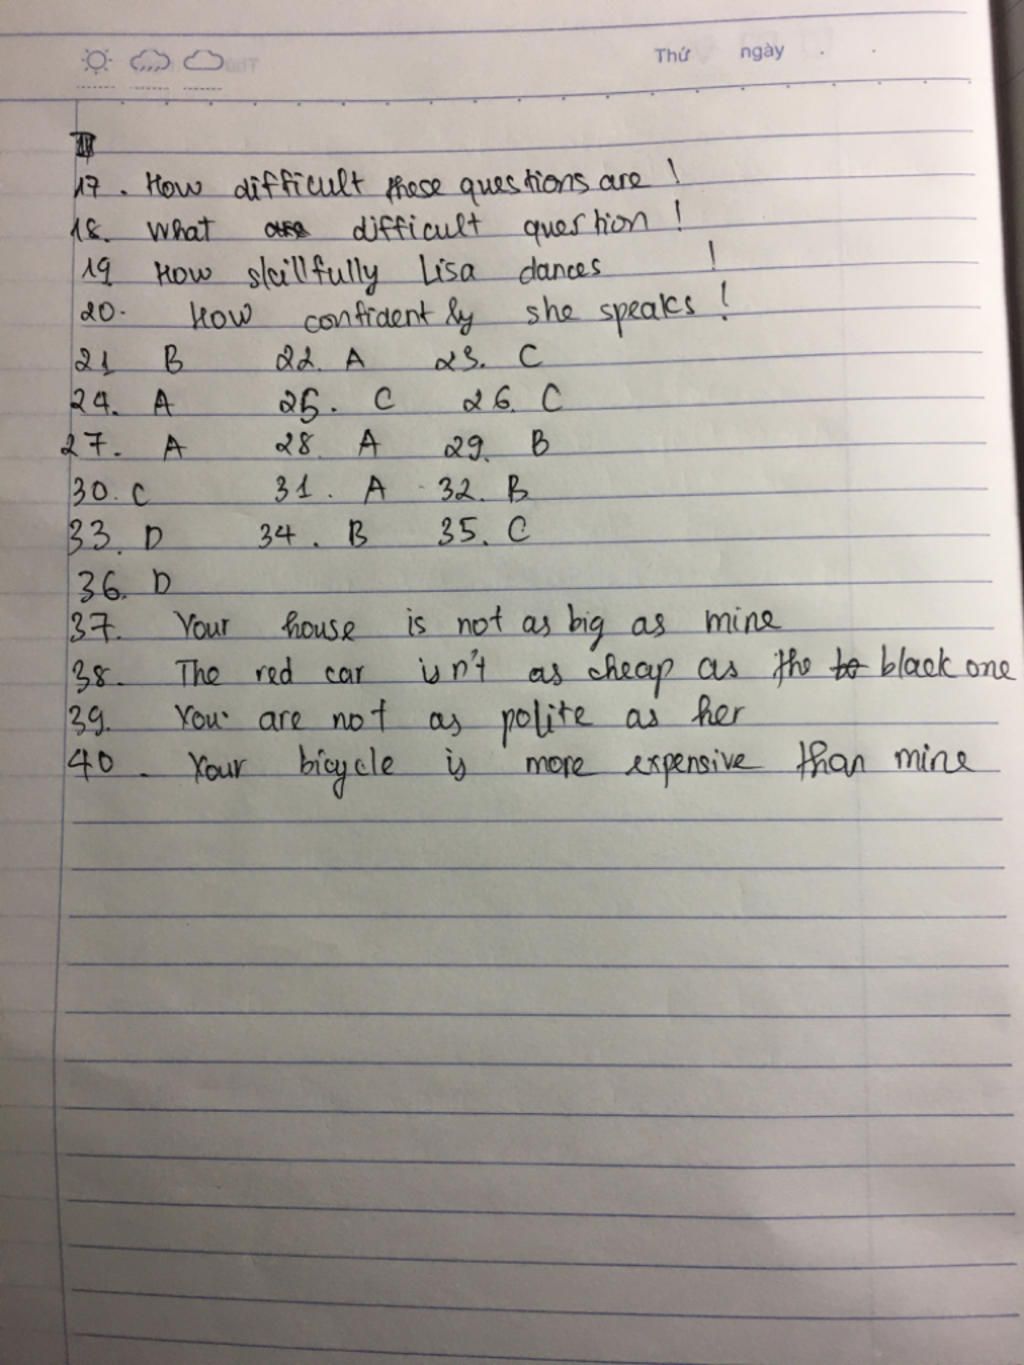 Thứ ngày
17. How difficult these questions are!
18. What difficult question!
19 How skillfully Lisa dances !
20. How confidently she speaks!
21 B 22. A 23. C
24. A 25. C 26. C
27. A 28. A 29. B
30. C 31. A 32. B
33. D 34. B 35. C
36. D
37. Your house is not as big as mine
38. The red car isn't as cheap as the black one
39. You are not as polite as her
40. Your bicycle is more expensive than mine